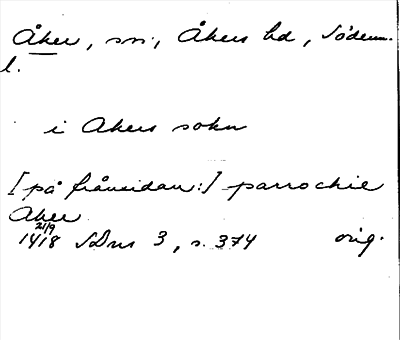 Åker, sn., Åkers hd, Söderm.
l.
i Akers sokn
[på frånsidan:] parrochie
Aker
21/9
1418 SDns 3, s. 374 orig.